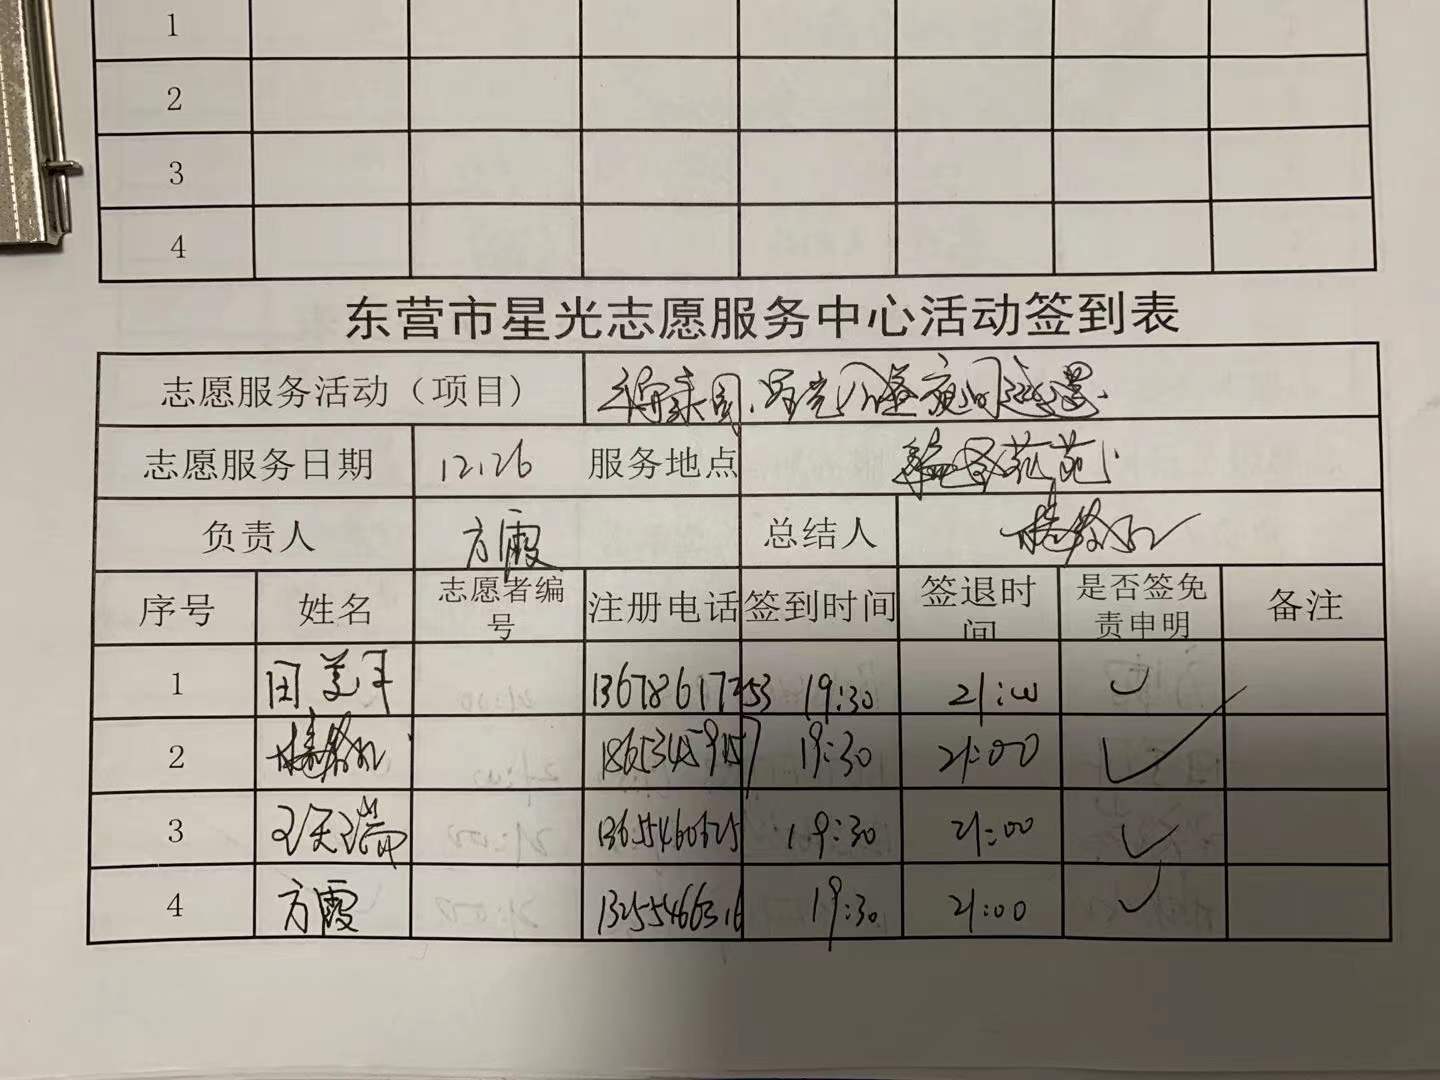 1
2
3
4
东营市星光志愿服务中心活动签到表
志愿服务活动（项目） 星光公益夜间巡逻
志愿服务日期 12.26 服务地点
负责人 方霞 总结人
序号 姓名 志愿者编号 注册电话 签到时间 签退时间 是否签免责申明 备注
1 田美 13678617253 19:30 21:00
2 18653459157 19:30 21:00
3 王天瑞 13655460625 19:30 21:00
4 方霞 13255466316 19:30 21:00